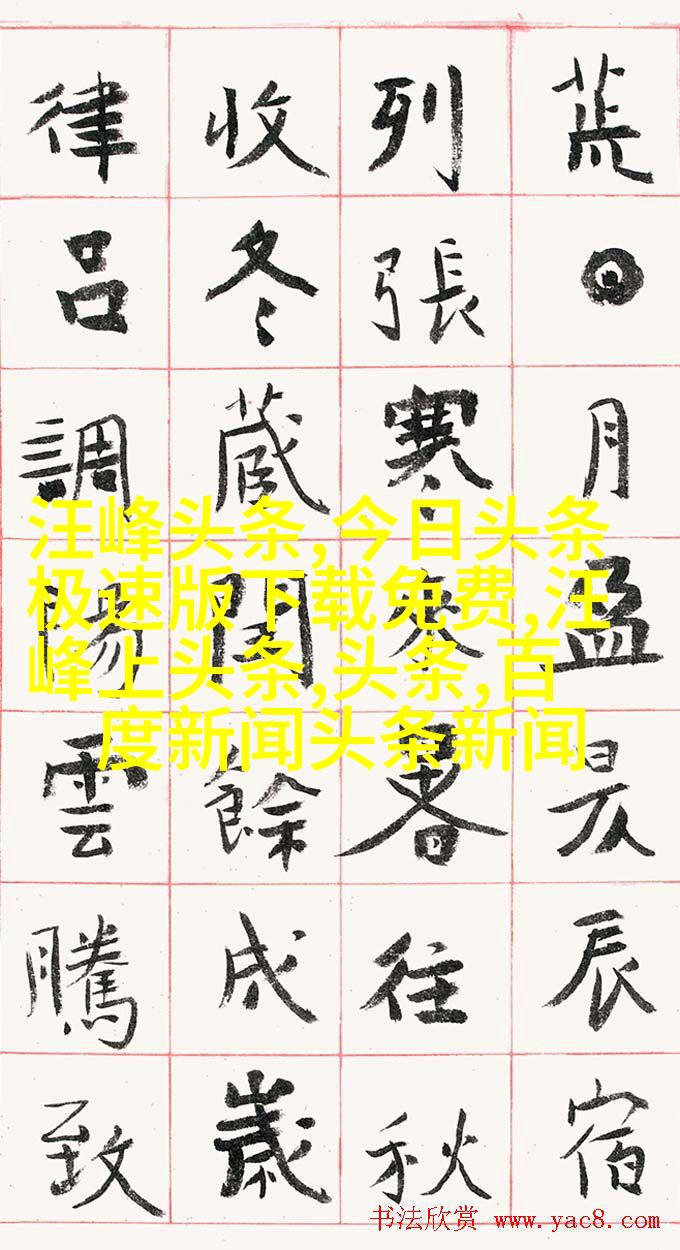 荒日月盈昃辰宿
列張寒來暑往秋
收冬藏閏餘成歲
律呂調陽雲騰致
汪峰头条,今日头条
极速版下载免费,汪
峰上头条,头条,百
度新闻头条新闻
书法欣赏 www.yac8.com